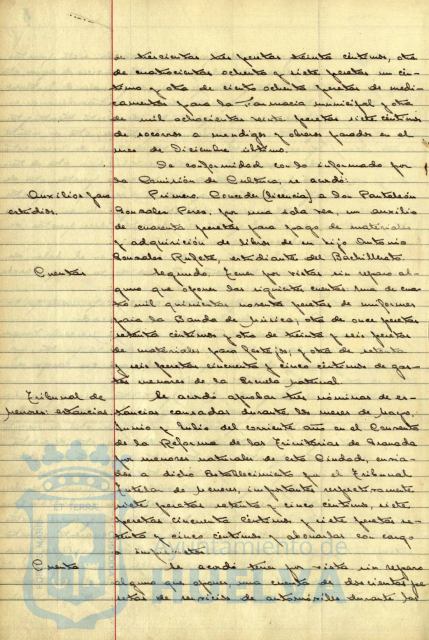 de trescientas tres pesetas treinta céntimos, otra
de cuatrocientas ochenta y siete pesetas un cén-
timo y otra de ciento ochenta pesetas de medi-
camentos para la Farmacia municipal y otra
de mil ochocientas veinte pesetas siete céntimos
de socorros a mendigos y obreros parados en el
mes de Diciembre último.
De conformidad con lo informado por
la Comisión de Cultura, se acordó:
Auxilios para
estudios.
Primero. Conceder (licencia) a Don Pantaleón
Gonzales Peres, por una sola vez, un auxilio
de cuarenta pesetas para pago de materiales
y adquisición de libros de su hijo Antonio
Gonzales Rufete, estudiante del Bachillerato.
Cuentas
Segundo. Tener por vistas sin reparo al-
guno que oponer las siguientes cuentas: una de cua-
tro mil quinientas noventa pesetas de uniformes
para la Banda de Música; otra de once pesetas
setenta céntimos y otra de treinta y seis pesetas
de materiales para festejos; y otra de setenta
y seis pesetas cincuenta y cinco céntimos de gas-
tos menores de la Escuela maternal.
Tribunal de
menores: estancias
Se acordó aprobar tres nóminas de es-
tancias causadas durante los meses de Mayo,
Junio y Julio del corriente año en el Convento
de la Reforma de las Trinitarias de Granada
por menores naturales de esta Ciudad, envia-
dos a dicho Establecimiento por el Tribunal
Tutela de menores, importantes respectivamente
siete pesetas setenta y cinco céntimos, siete
pesetas cincuenta céntimos y siete pesetas se-
tenta y cinco céntimos y abonarlas con cargo
a imprevistos.
Cuenta
Se acordó tener por vista sin reparo
alguno que oponer, una cuenta de doscientas pe-
setas de servicios de automóviles durante los
Ayuntamiento de